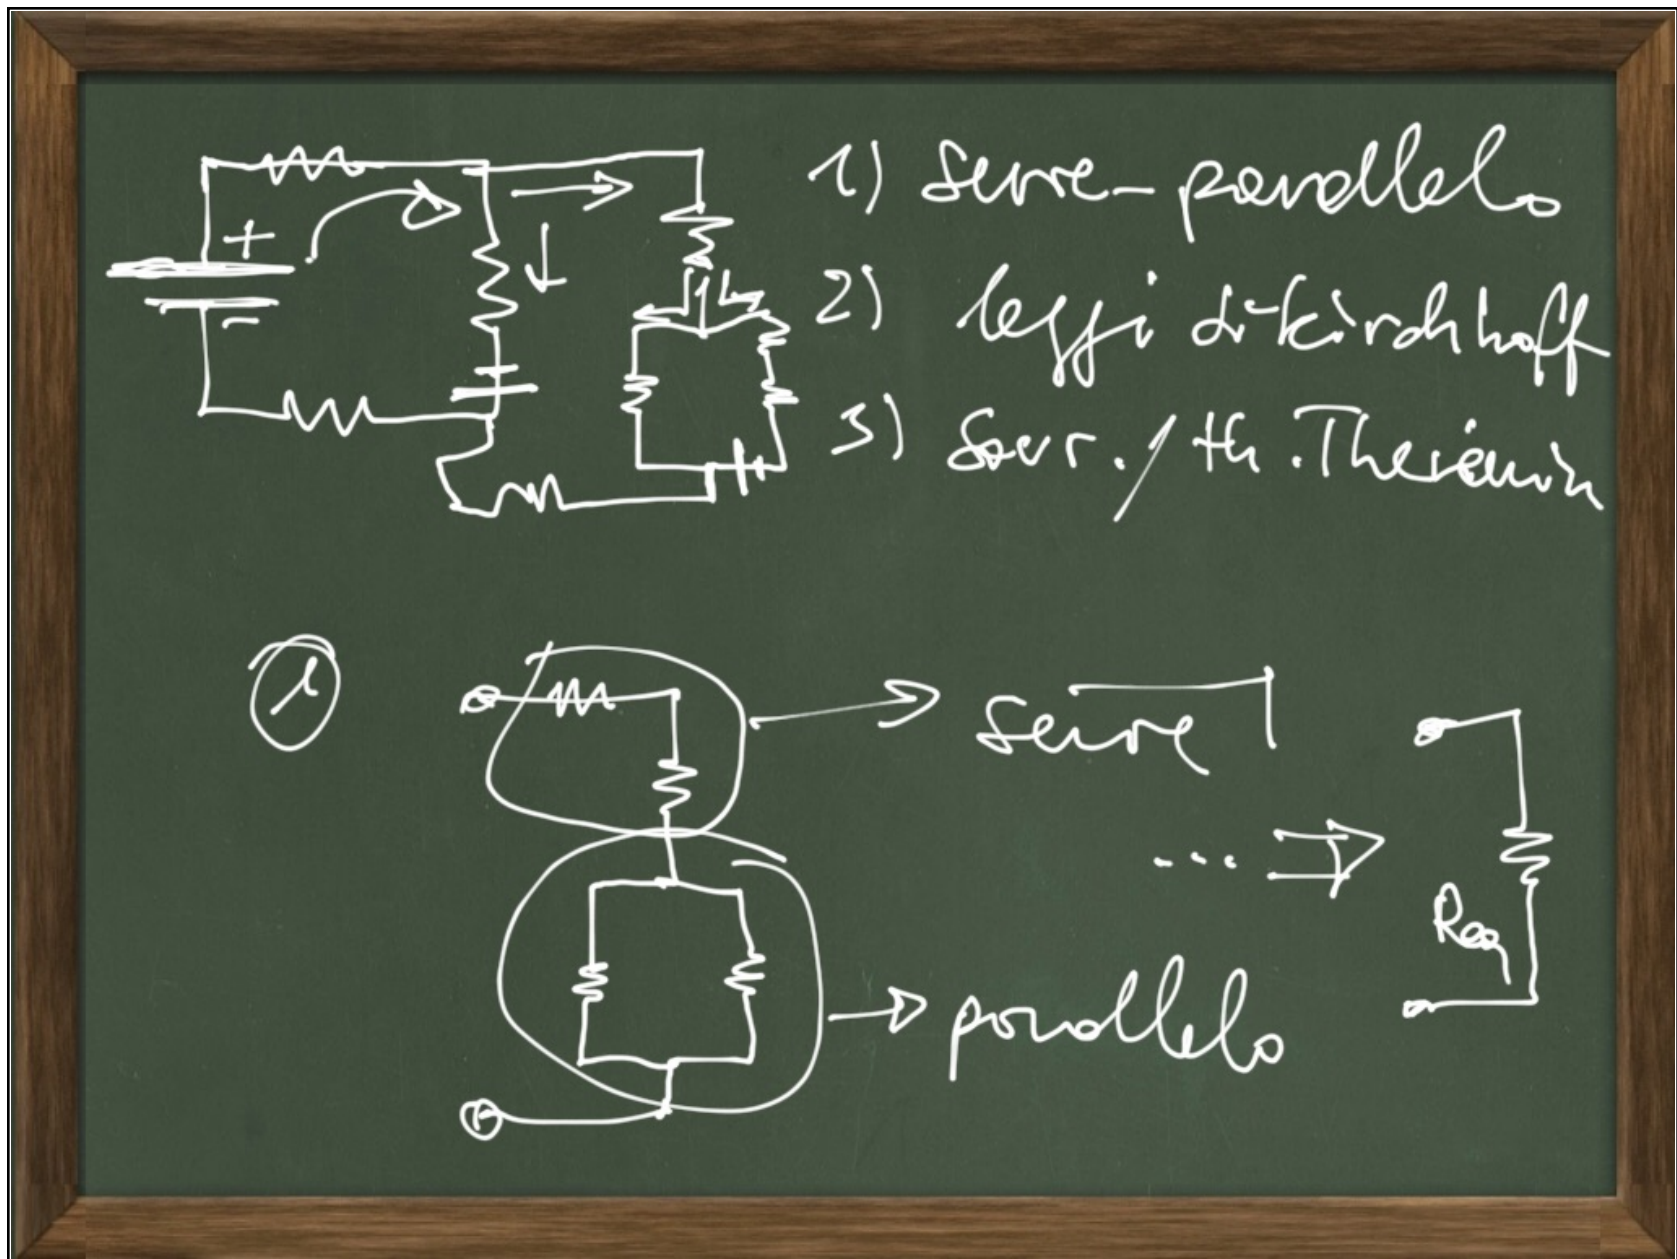 +
-
1) Serie-parallelo
2) leggi di Kirchhoff
3) Sovr. / th. Thevénin
1
serie
...
Req
parallelo